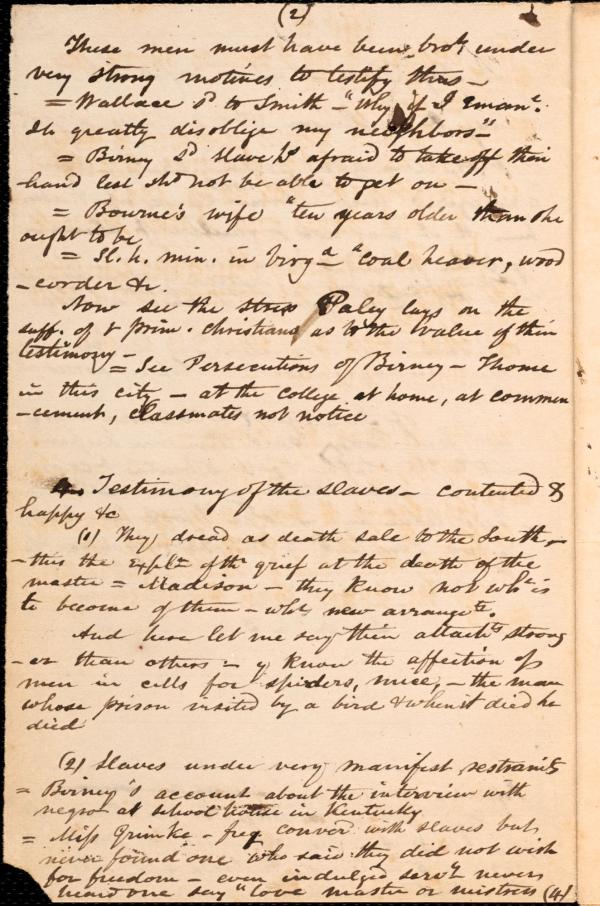 (2)
These men must have been bro't under
very strong motives to testify thus —
= Wallace sd to Smith — "Why if I eman'.
Sh greatly disoblige my neighbors"
= Birney sd slave hs afraid to take off their
hand lest shd not be able to get on —
= Bourne's wife "ten years older than she
ought to be
= Sl. h. min. in Virga — "coal heaver, wood
-corder &c.
Now see the stress Paley lays on the
suff. of & prim. christians as to the value of their
testimony —
= See Persecutions of Birney — Thome
in this city — at the college at home, at commen
-cement, classmates not notice
4. Testimony of the slaves — contented &
happy &c
(1) They dread as death sale to the South, —
— this the expln of the grief at the death of the
master = Madison — they know not wht is
to become of them — wht new arrangts.
And here let me say their attachts strong
-er than others — y know the affection of
men in cells for spiders, mice, — the man
whose prison visited by a bird & when it died he
died
(2) Slaves under very manifest restraints
= Birney's account about the interview with
negro at school house in Kentucky
= Miss Grimke — freq convers with slaves but
never found one who said they did not wish
for freedom — even indulged servts never
heard one say "love master or mistress (4)